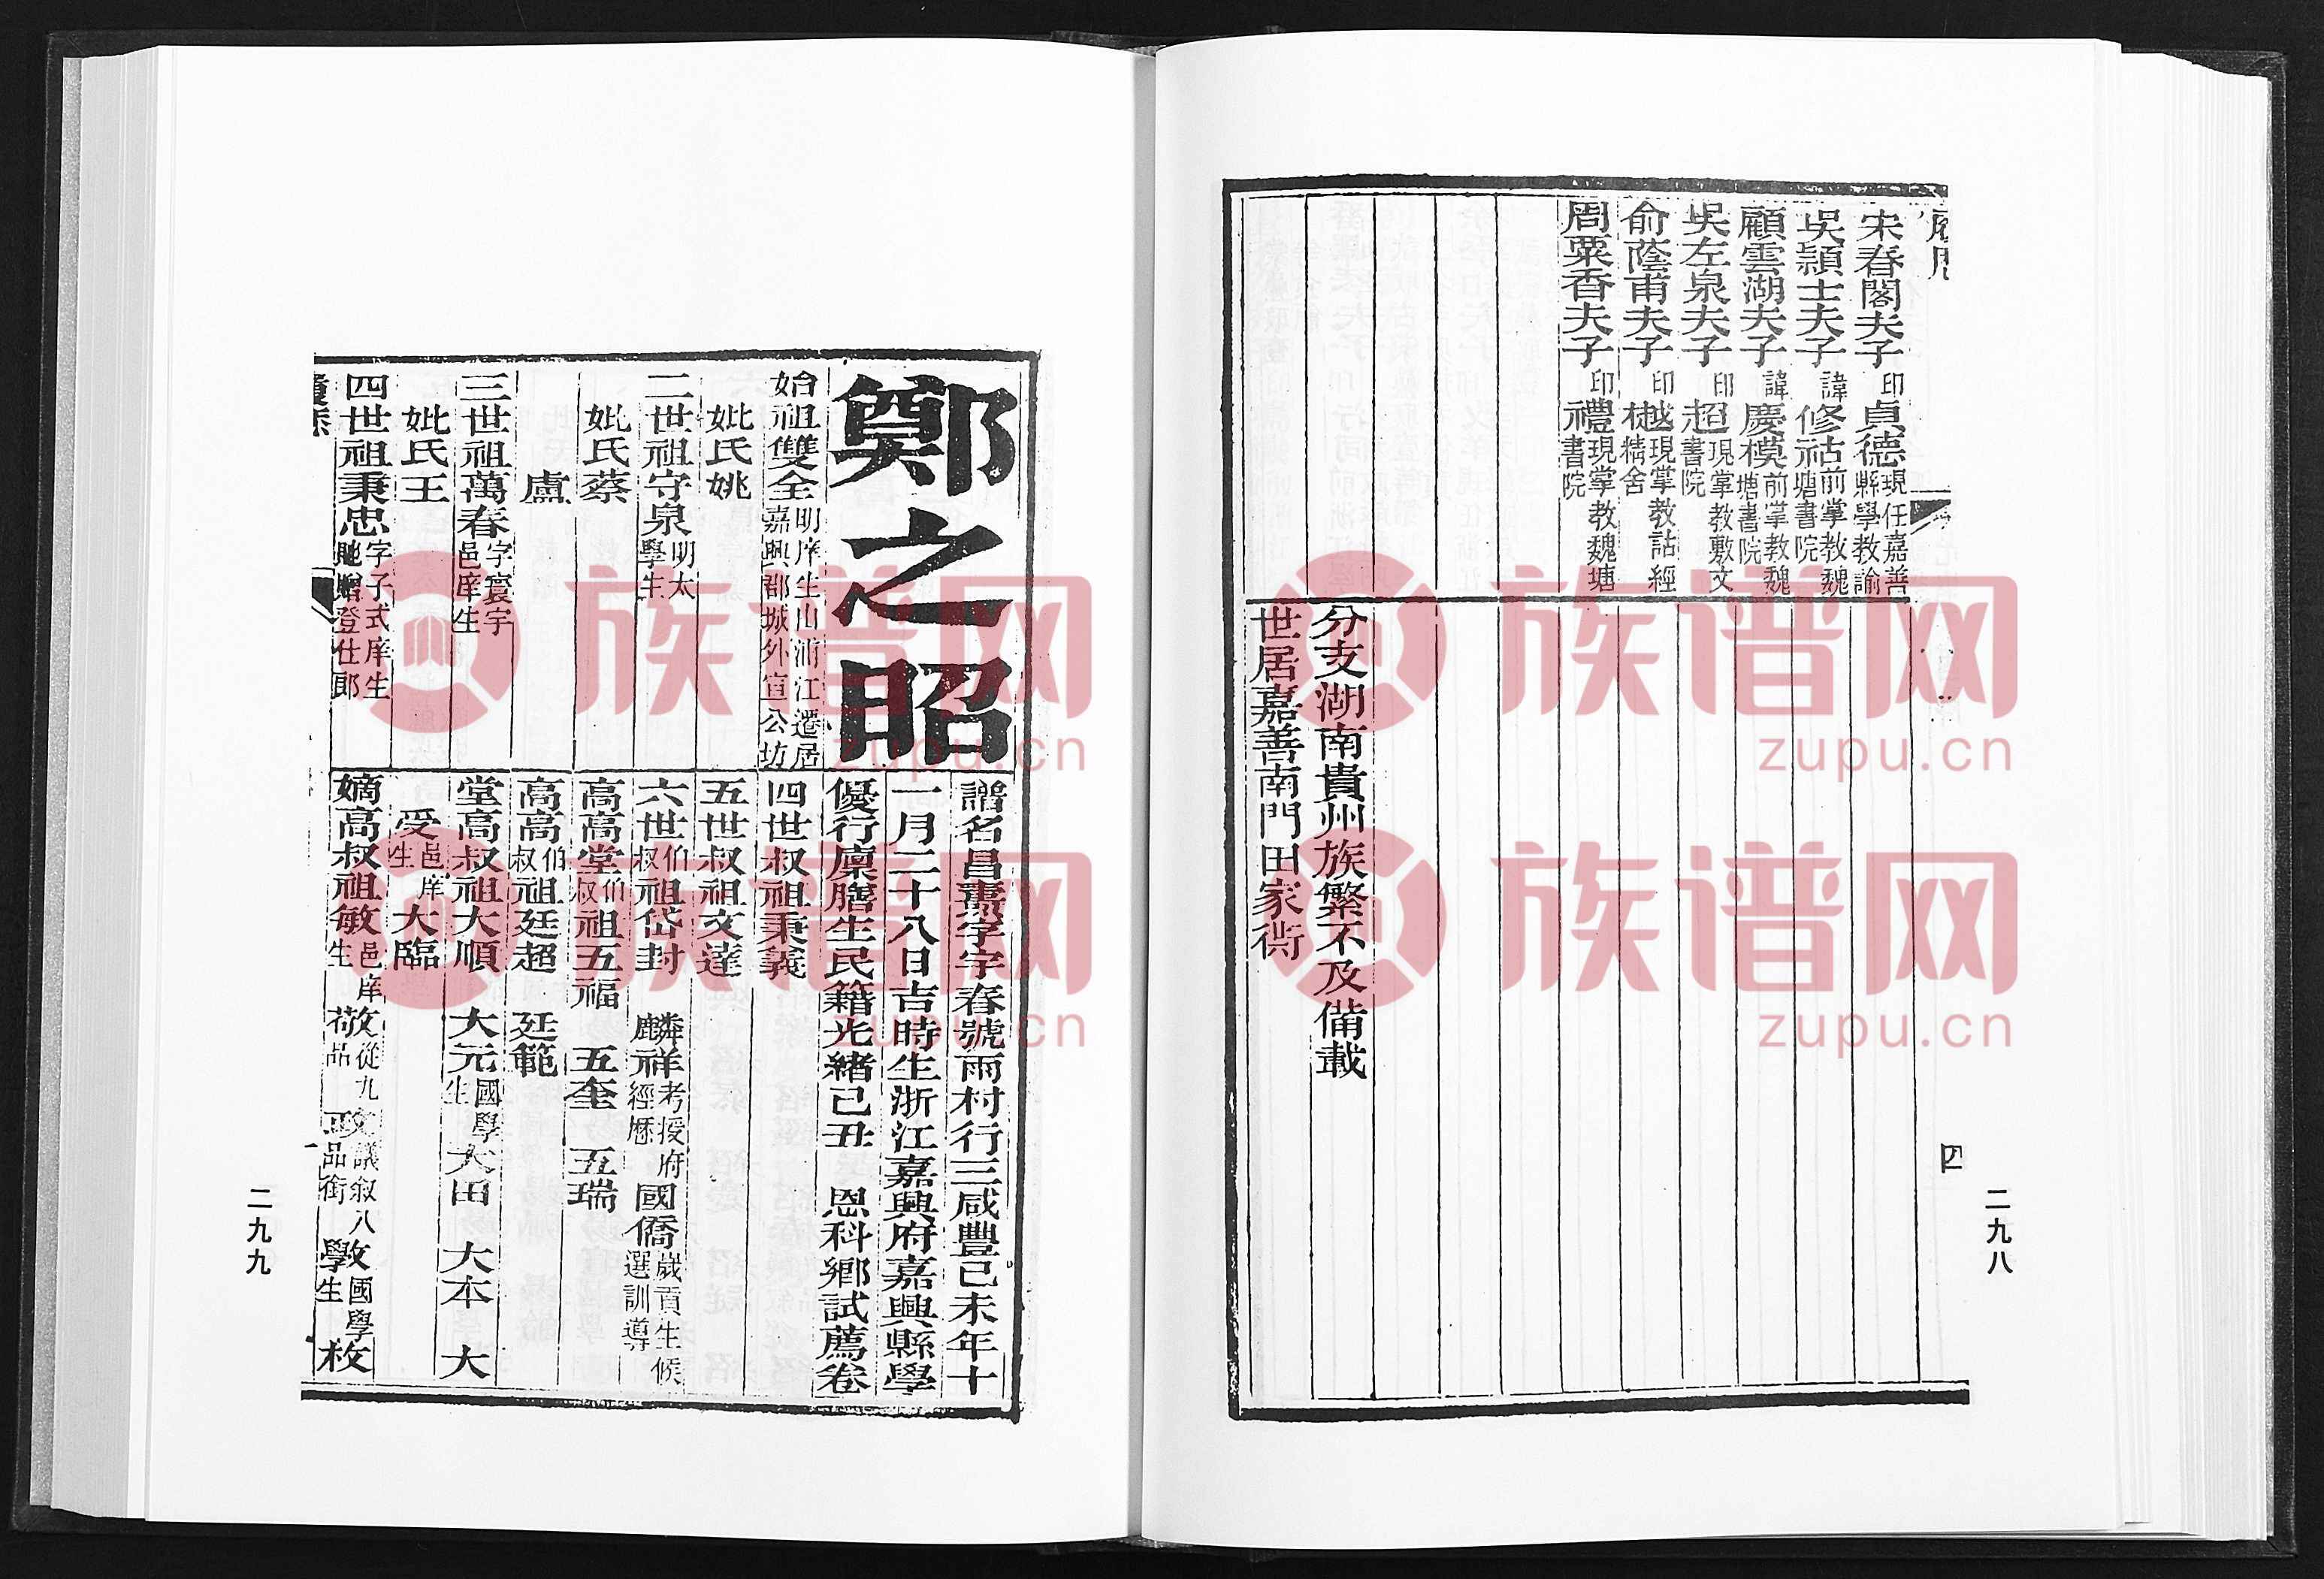 宋春閣夫子印貞德現任嘉善縣學教諭
吳頴士夫子諱修祜前掌教魏塘書院
顧雲湖夫子諱慶模前掌教魏塘書院
吳左泉夫子印超現掌教敷文書院
俞蔭甫夫子印樾現掌教詁經精舍
周粟香夫子印禮現掌教魏塘書院
分支湖南貴州族繁不及備載
世居嘉善南門田家衖
四
二九八
鄭之昭
始祖雙全明庠生由浦江遷居嘉興郡城外宣公坊
妣氏姚
二世祖守泉明太學生
妣氏蔡
盧
三世祖萬春字寰宇邑庠生
妣氏王
四世祖秉忠字子式庠生馳贈登仕郎
譜名昌燾字字春號雨村行三咸豐己未年十
一月二十八日吉時生浙江嘉興府嘉興縣學
優行廩膳生民籍光緒己丑 恩科鄉試薦卷
四世叔祖秉義
五世叔祖文達
六世伯叔祖岱封 麟祥 麒祥考授府經歷 國僑歲貢生候選訓導
高高堂伯叔祖五福 五奎 五瑞
高高伯叔祖廷超 廷範
堂高叔祖大順 大元國學生 大田 大本 大
受邑庠生 大臨
嫡高叔祖敏邑庠生 敬從九品 政議敘八品銜 敩國學生 枚
二九九
族谱网
zupu.cn
族谱网
zupu.cn
族谱网
zupu.cn
族谱网
zupu.cn